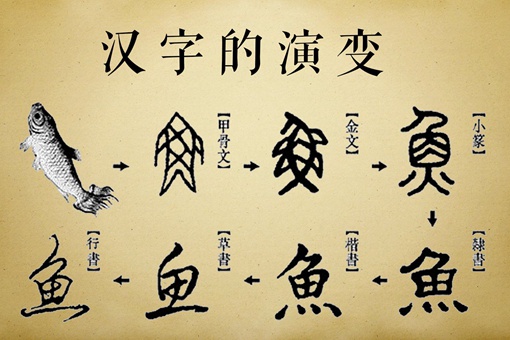 汉字的演变
魚【甲骨文】
魚【金文】
魚【小篆】
魚【隸書】
魚【楷書】
鱼【草書】
魚【行書】